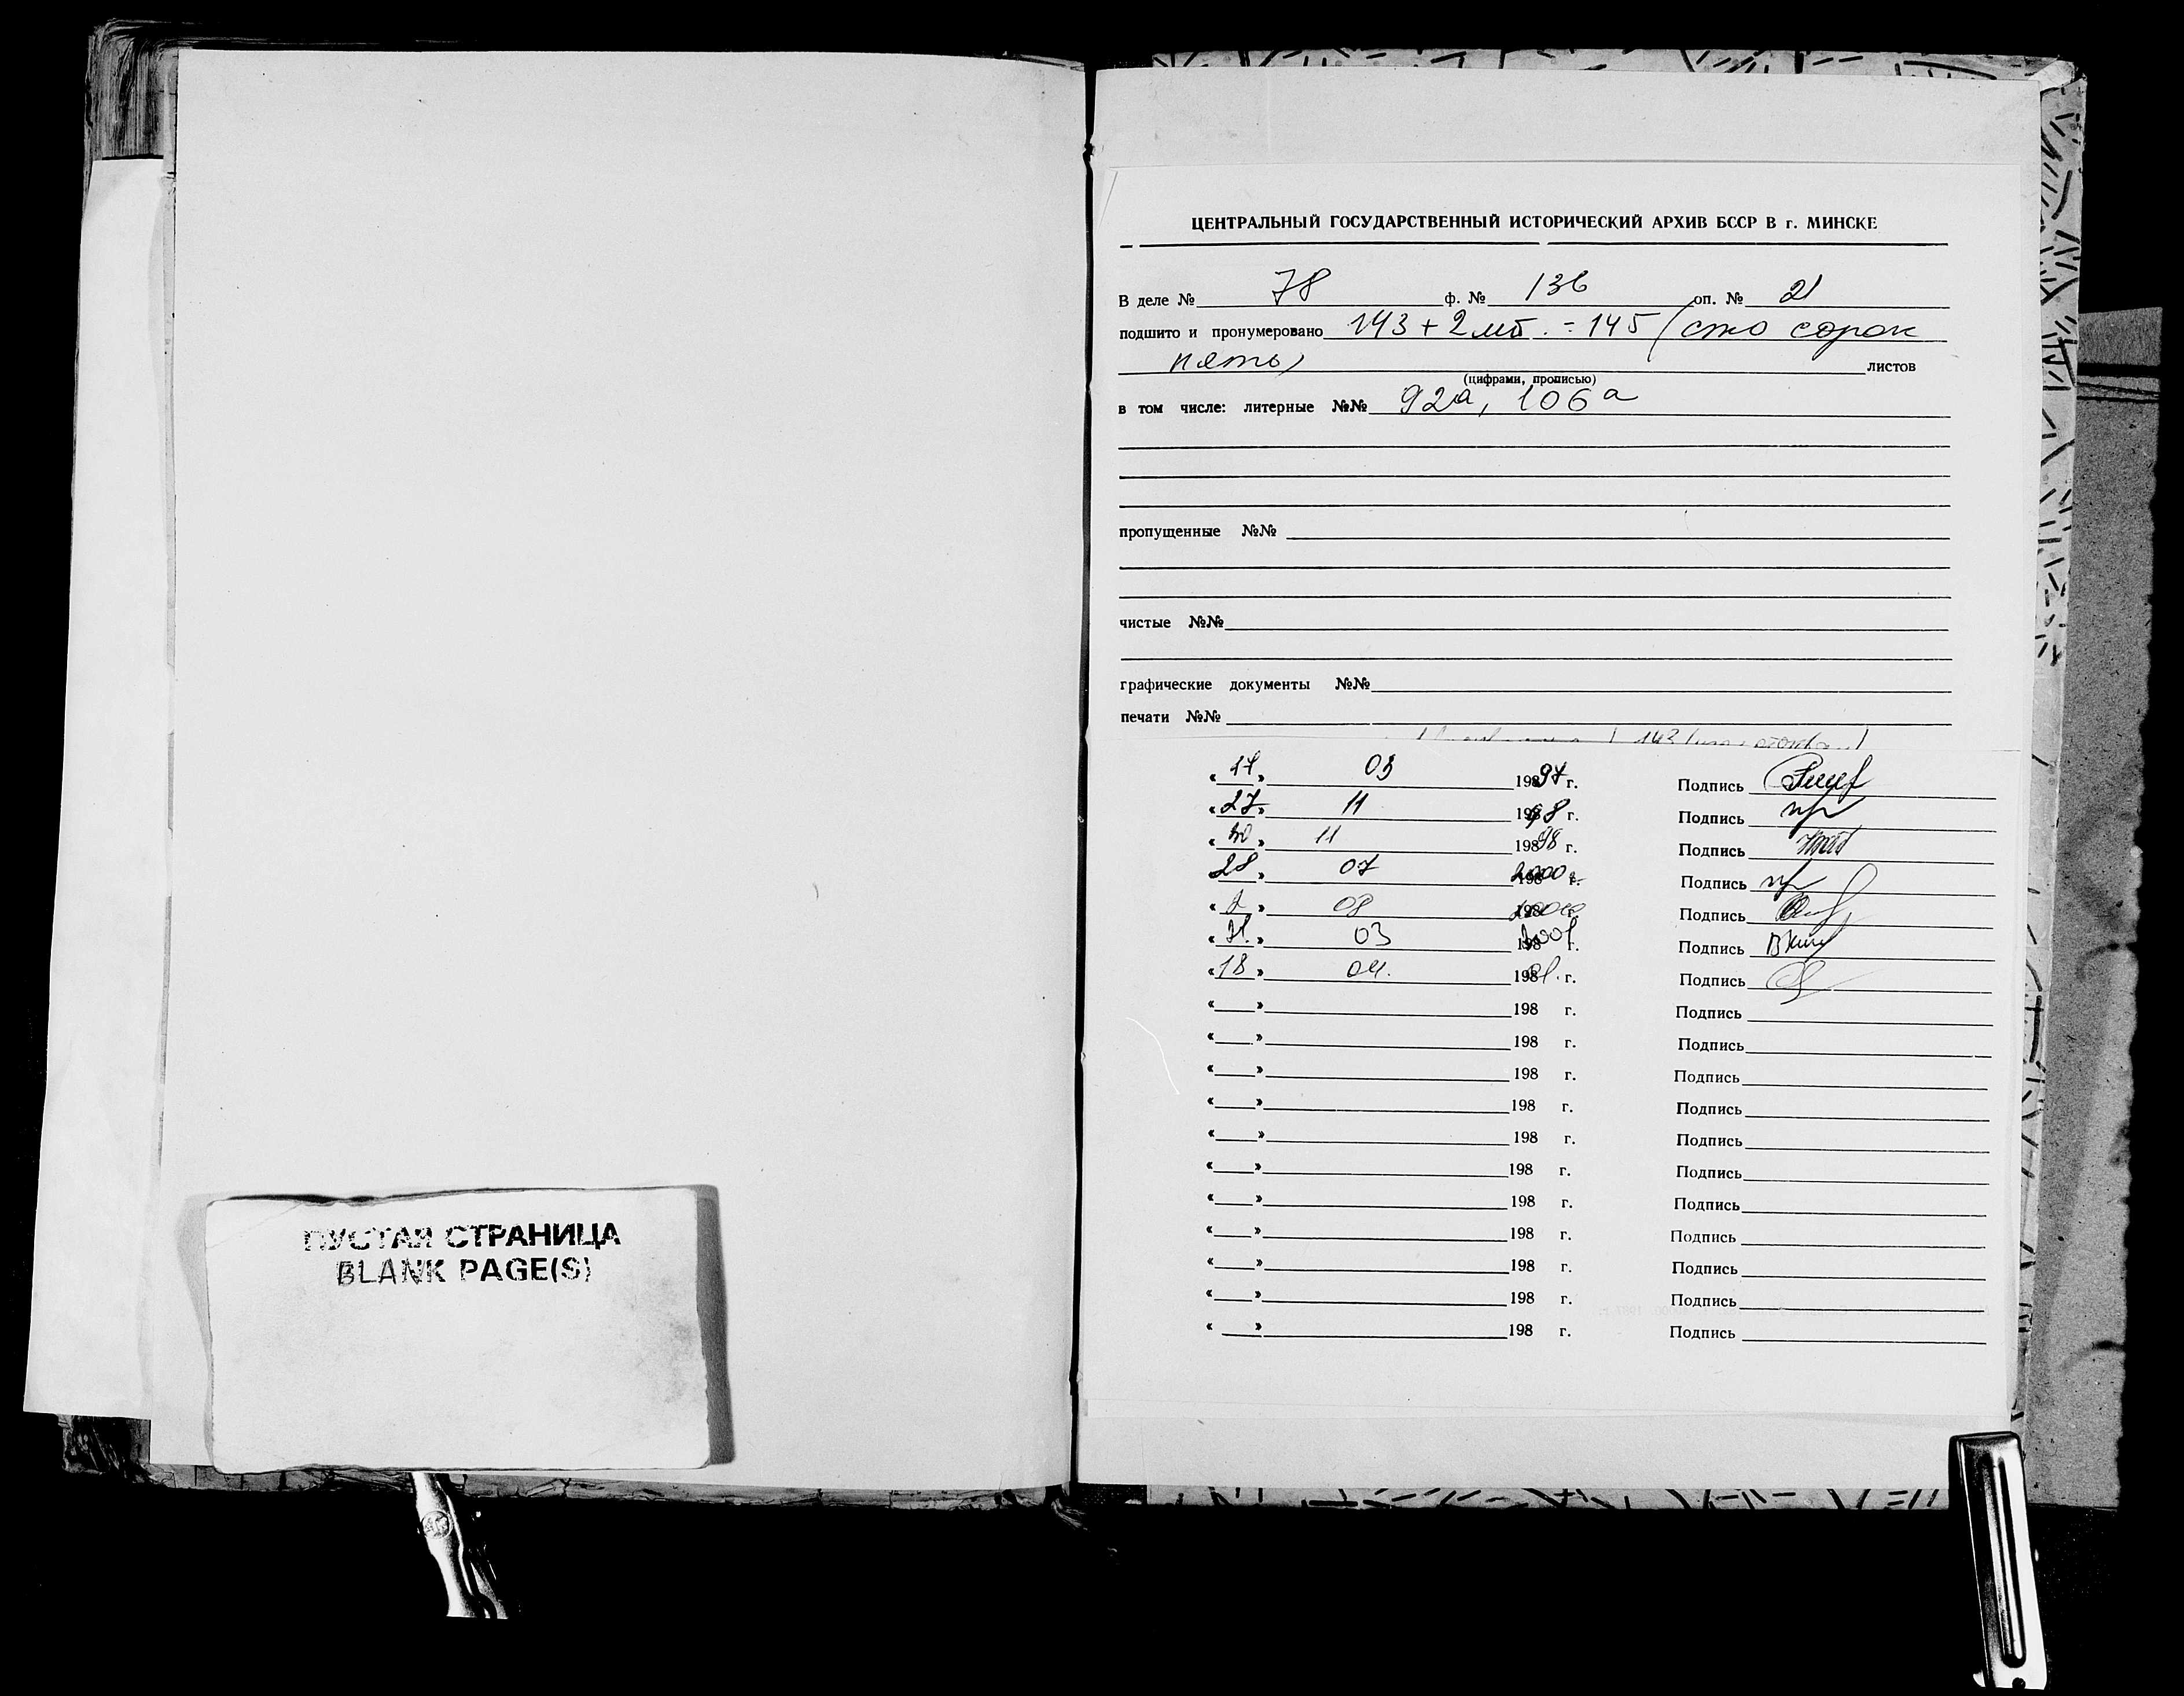 ПУСТАЯ СТРАНИЦА
BLANK PAGE(S)
ЦЕНТРАЛЬНЫЙ ГОСУДАРСТВЕННЫЙ ИСТОРИЧЕСКИЙ АРХИВ БССР В г. МИНСКЕ
В деле № 78 ф. № 136 оп. № 21
подшито и пронумеровано 143 + 2 лит. = 145 (сто сорок
пять) листов
(цифрами, прописью)
в том числе: литерные №№ 92а, 106а
пропущенные №№
чистые №№
графические документы №№
печати №№
« » 03 19897 г. Подпись
«27» 11 198 г. Подпись
«30» 11 19898 г. Подпись
28» 07 2000 г. Подпись
« » 08 198 г. Подпись
« » 03 2001 г. Подпись
«18» 04. 198 г. Подпись
« » 198 г. Подпись
« » 198 г. Подпись
« » 198 г. Подпись
« » 198 г. Подпись
« » 198 г. Подпись
« » 198 г. Подпись
« » 198 г. Подпись
« » 198 г. Подпись
« » 198 г. Подпись
« » 198 г. Подпись
« » 198 г. Подпись